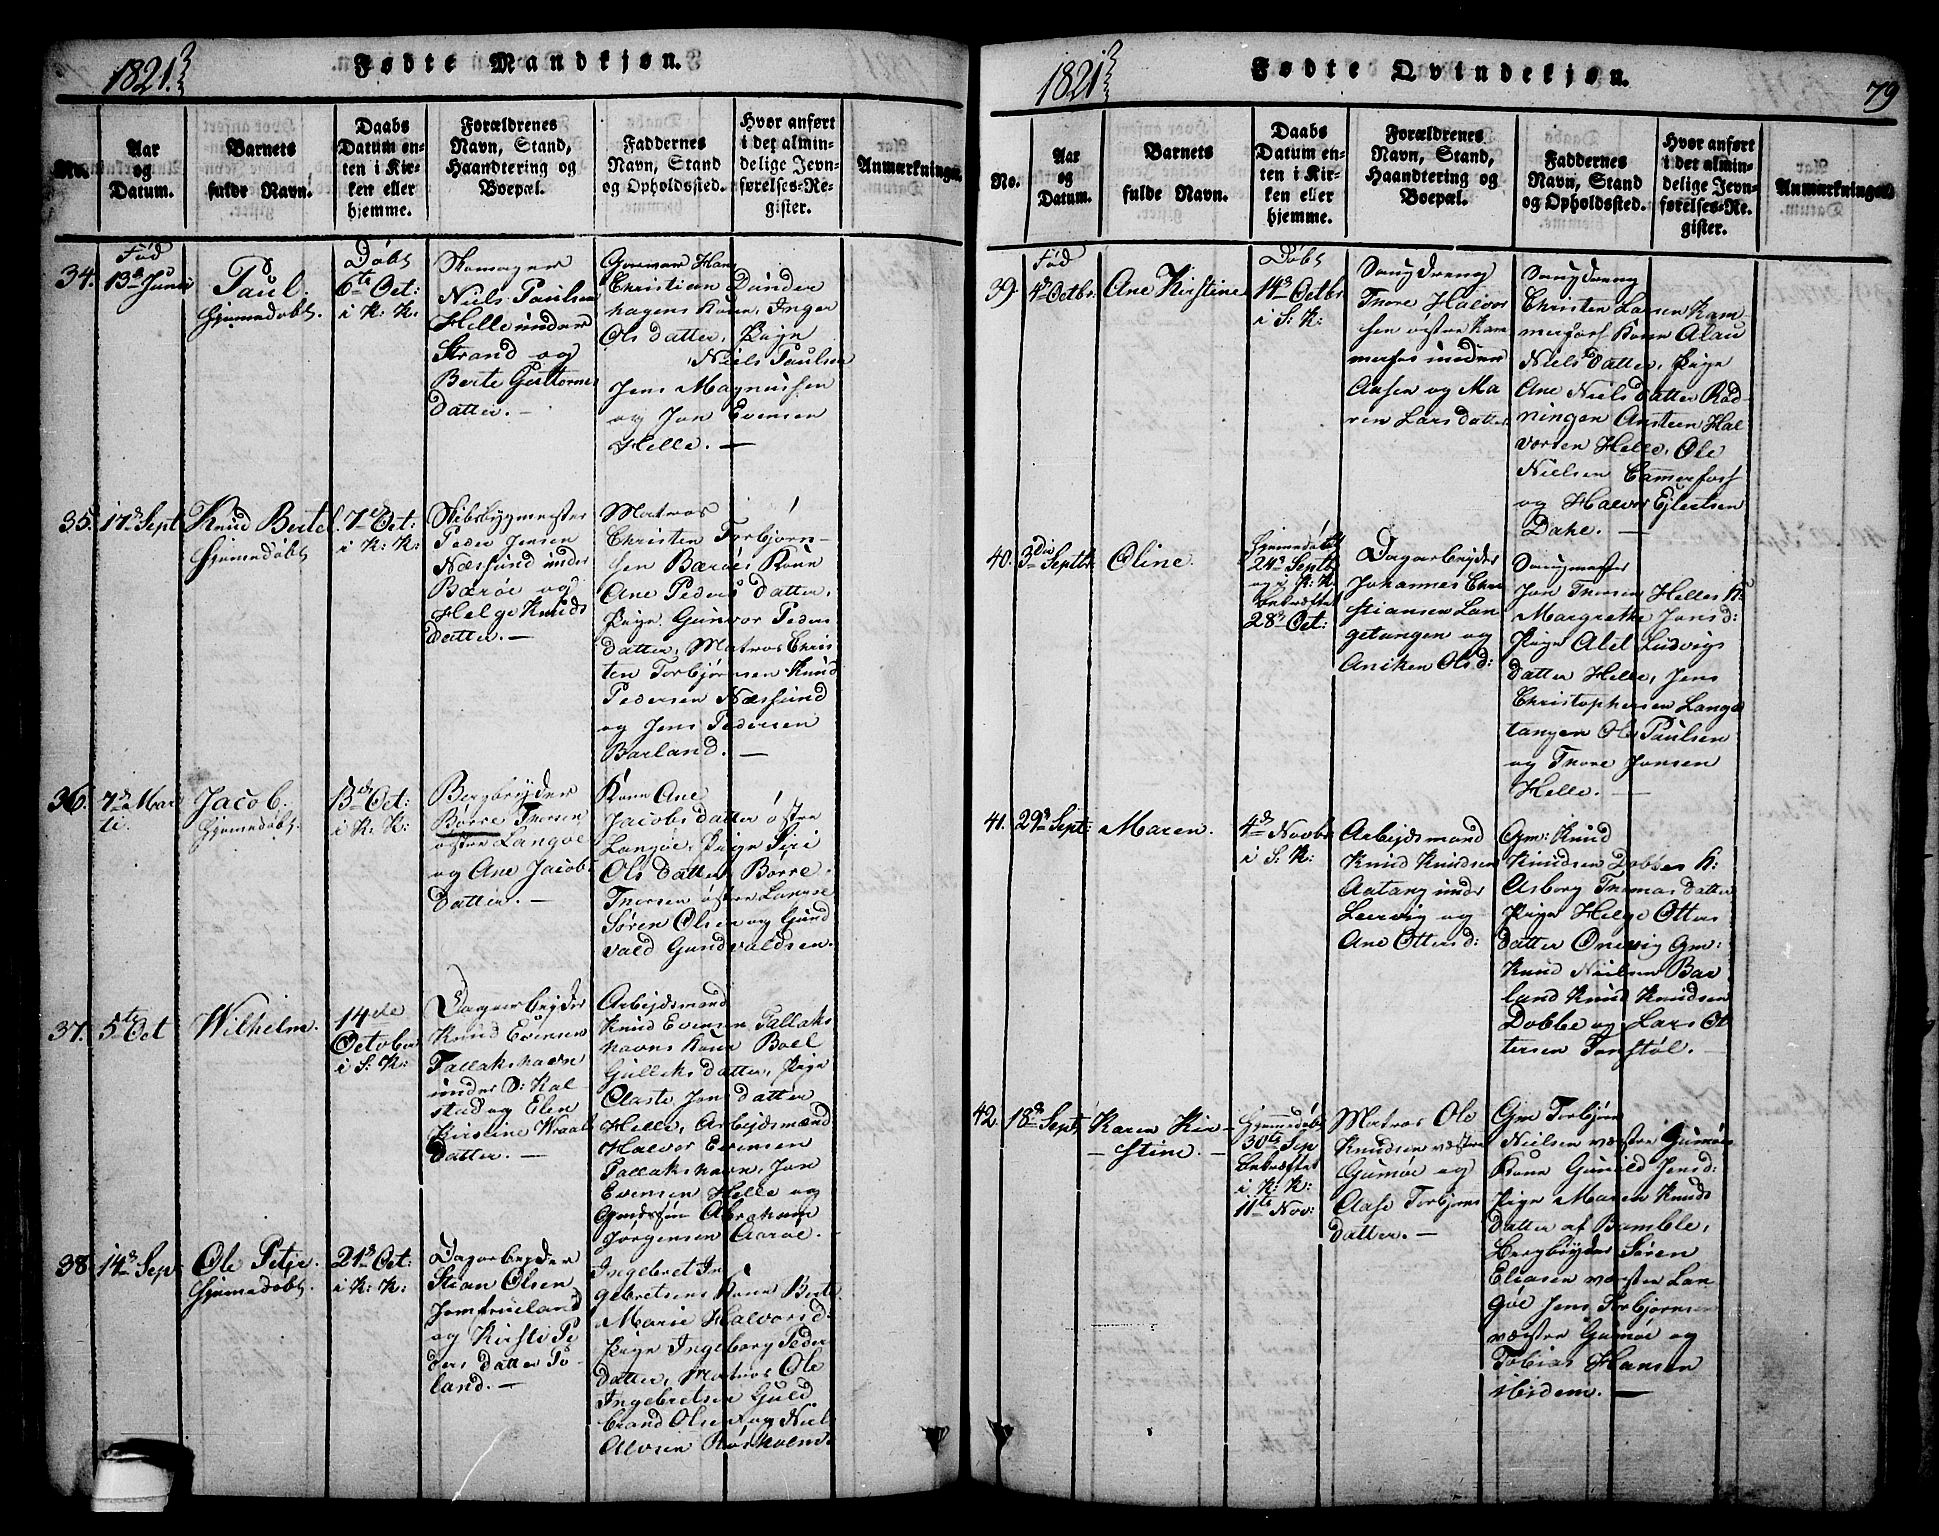 1821.
Fødte Mandkjøn.
No.
Aar
og
Datum.
Barnets
fulde Navn.
Daabs
Datum en-
ten i Kir-
ken eller
hjemme.
Forældrenes
Navn, Stand,
Haandtering og
Boepæl.
Faddernes
Navn, Stand
og Opholdssted.
Hvor anført
i det almin-
delige Jevn-
førelses-Re-
gister.
Anmærkninger.
34.
Fød
13de Juni
Paul.
hjemedøbt.
Døbt
6te Oct:
i K: K.
Skomager
Niels Paulsen
Helle under
Strand og
Berte Guttorms
datter. —
Hans
Christian Dønder
hagens Kone, Inger
Olsdatter, Pige
Niels Paulsen
Jens Magnussen
og Jon Evensen
Helle. —
35.
17de Sept
Knud Bertel.
hjemedøbt
7de Oct:
i K: K:
Skibsbygmester
Peder Jensen
Næssund under
Barøe og
Helge Knuds
datter. —
Matros
Christen Torbjørn-
sen Barøes Kone
Ane Peders datter,
Pige Gunvor Peders
datter, Matros Chris
ten Torbjørnsen Knud
Pedersen Næssund
og Jens Pedersen
Barland. —
36.
7de Mar
ti.
Jacob.
hjemedøbt.
13de Oct:
i K: K:
Bergbryder
Børre Thorsen
østre Langøe
og Ane Jacobs
datter. —
Kone Ane
Jacobsdatter østre
Langøe, Pige Siri
Ols datter, Børre
Thorsen østre Langøe
Søren Olsen og Gund
vald Gundvaldsen.
37.
5te Oct
Wilhelm.
14de
October
i S: K:
Dagarbeyder
Knud Evensen
Tallakshavn
under S: Kal
stad og Elen
Kirstine Wraals
datter. —
Arbejdsmand
Knud Evensen Tallaks
havns Kone Boel
Gulleks datter, Pige
Claste Jens datter
Helle, Arbejdsmænd
Halvor Evensen
Tallakshavn, Jon
Evensen Helle og
Abraham
Jørgensen Aarøe.
38
14de Sep
Ole Petje.
hjemedøbt.
21de Oct:
i K: K:
Dagarbeyder
Stian Olsen
Jomfrueland
og Kirsti Pe
ders datter Pø
land. —
Ingebret In
gebretsens Kone Berte
Marie Halvorsd:
Pige Ingeborg Peder
datter, Matros Ole
Ingebretsen Guld
brand Olsen og Niels
Alvsen Røsholm.
1821
Fødte Qvindekjøn.
79
No.
Aar
og
Datum.
Barnets
fulde Navn.
Daabs
Datum en-
ten i Kir-
ken eller
hjemme.
Forældrenes
Navn, Stand,
Haandtering og
Boepæl.
Faddernes
Navn, Stand
og Opholdssted.
Hvor anført
i det almin-
delige Jevn-
førelses-Re-
gister.
Anmærkninger.
39.
Fød
4de Octbr.
Ane Kirstine
Døbt
14de Octbr
i S: K:
Saugdreng
Thore Halvor
sen østre Kam
merfos under
Aasen og Ma
ren Larsdatter
Saugdreng
Christen Larsen Kam
merfoss Kone Alau
Nielsdatter, Pige
Ane Nielsdatter Rød-
ningen Ansteen Hal
vorsen Helle, Ole
Nielsen Camerfoss
og Halvor Ejlertsen
Dahe. —
40.
3die Septbr.
Oline.
hjemedøbt
24de Septb
og i K: K.
bekræftet
28de Oct:
Dagarbeyder
Johannes Chri
stiansen Lan
getangen og
Aniken Olsd:
Saugmester
Jon Thorsen Helles K:
Margrethe Jonsd:
Pige Alet Ludvigs
datter Helle, Jens
Christophersen Lange
tangen Ole Paulsen
og Thore Jonsen
Helle. —
41.
29de Sept:
Maren.
4de Novbr
i S: K:
Arbejdsmand
Knud Knudsen
Aatang under
Leervig og
Ane Ottersd:
Gm: Knud
Knudsen Dobbes K:
Asborg Thomas datter
Pige Helge Otters
datter Gm:
Knud Nielsen Bar
land Knud Knudsen
Dobbe og Lars Ot
tersen Tonstøl. —
42.
18de Sept.
Karen Kir-
— stine. —
hjemmedøbt
30te Sep
bekræftet
i K: K:
11te Nov:
Matros Ole
Knudsen vestre
Gumøe og
Aase Torbjørns
datter. —
Gm Torbjørn
Nielsen vestre Gumøes
Kone Gunild Jensd:
Pige Maren Knuds
datter af Bamble,
Bergbryder Søren
Eliasen vestre Lan
gøe Jens Torbjørnsen
vestre Gumøe og
Tobias Hansen
ibidem. —